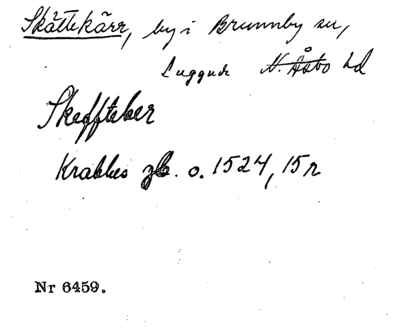 Skättekärr, by i Brunnby sn,
Luggude N. Åsbo hd
Skeffteker
Krabbes jb. o. 1524, 15 r
Nr 6459.